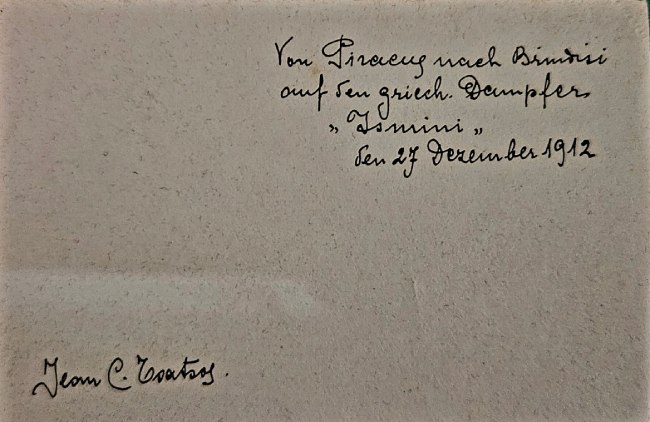 Von Piraeus nach Brindisi
auf den griech. Dampfer
„Ismini„
den 27 Dezember 1912
Jean C. Tsatsos.